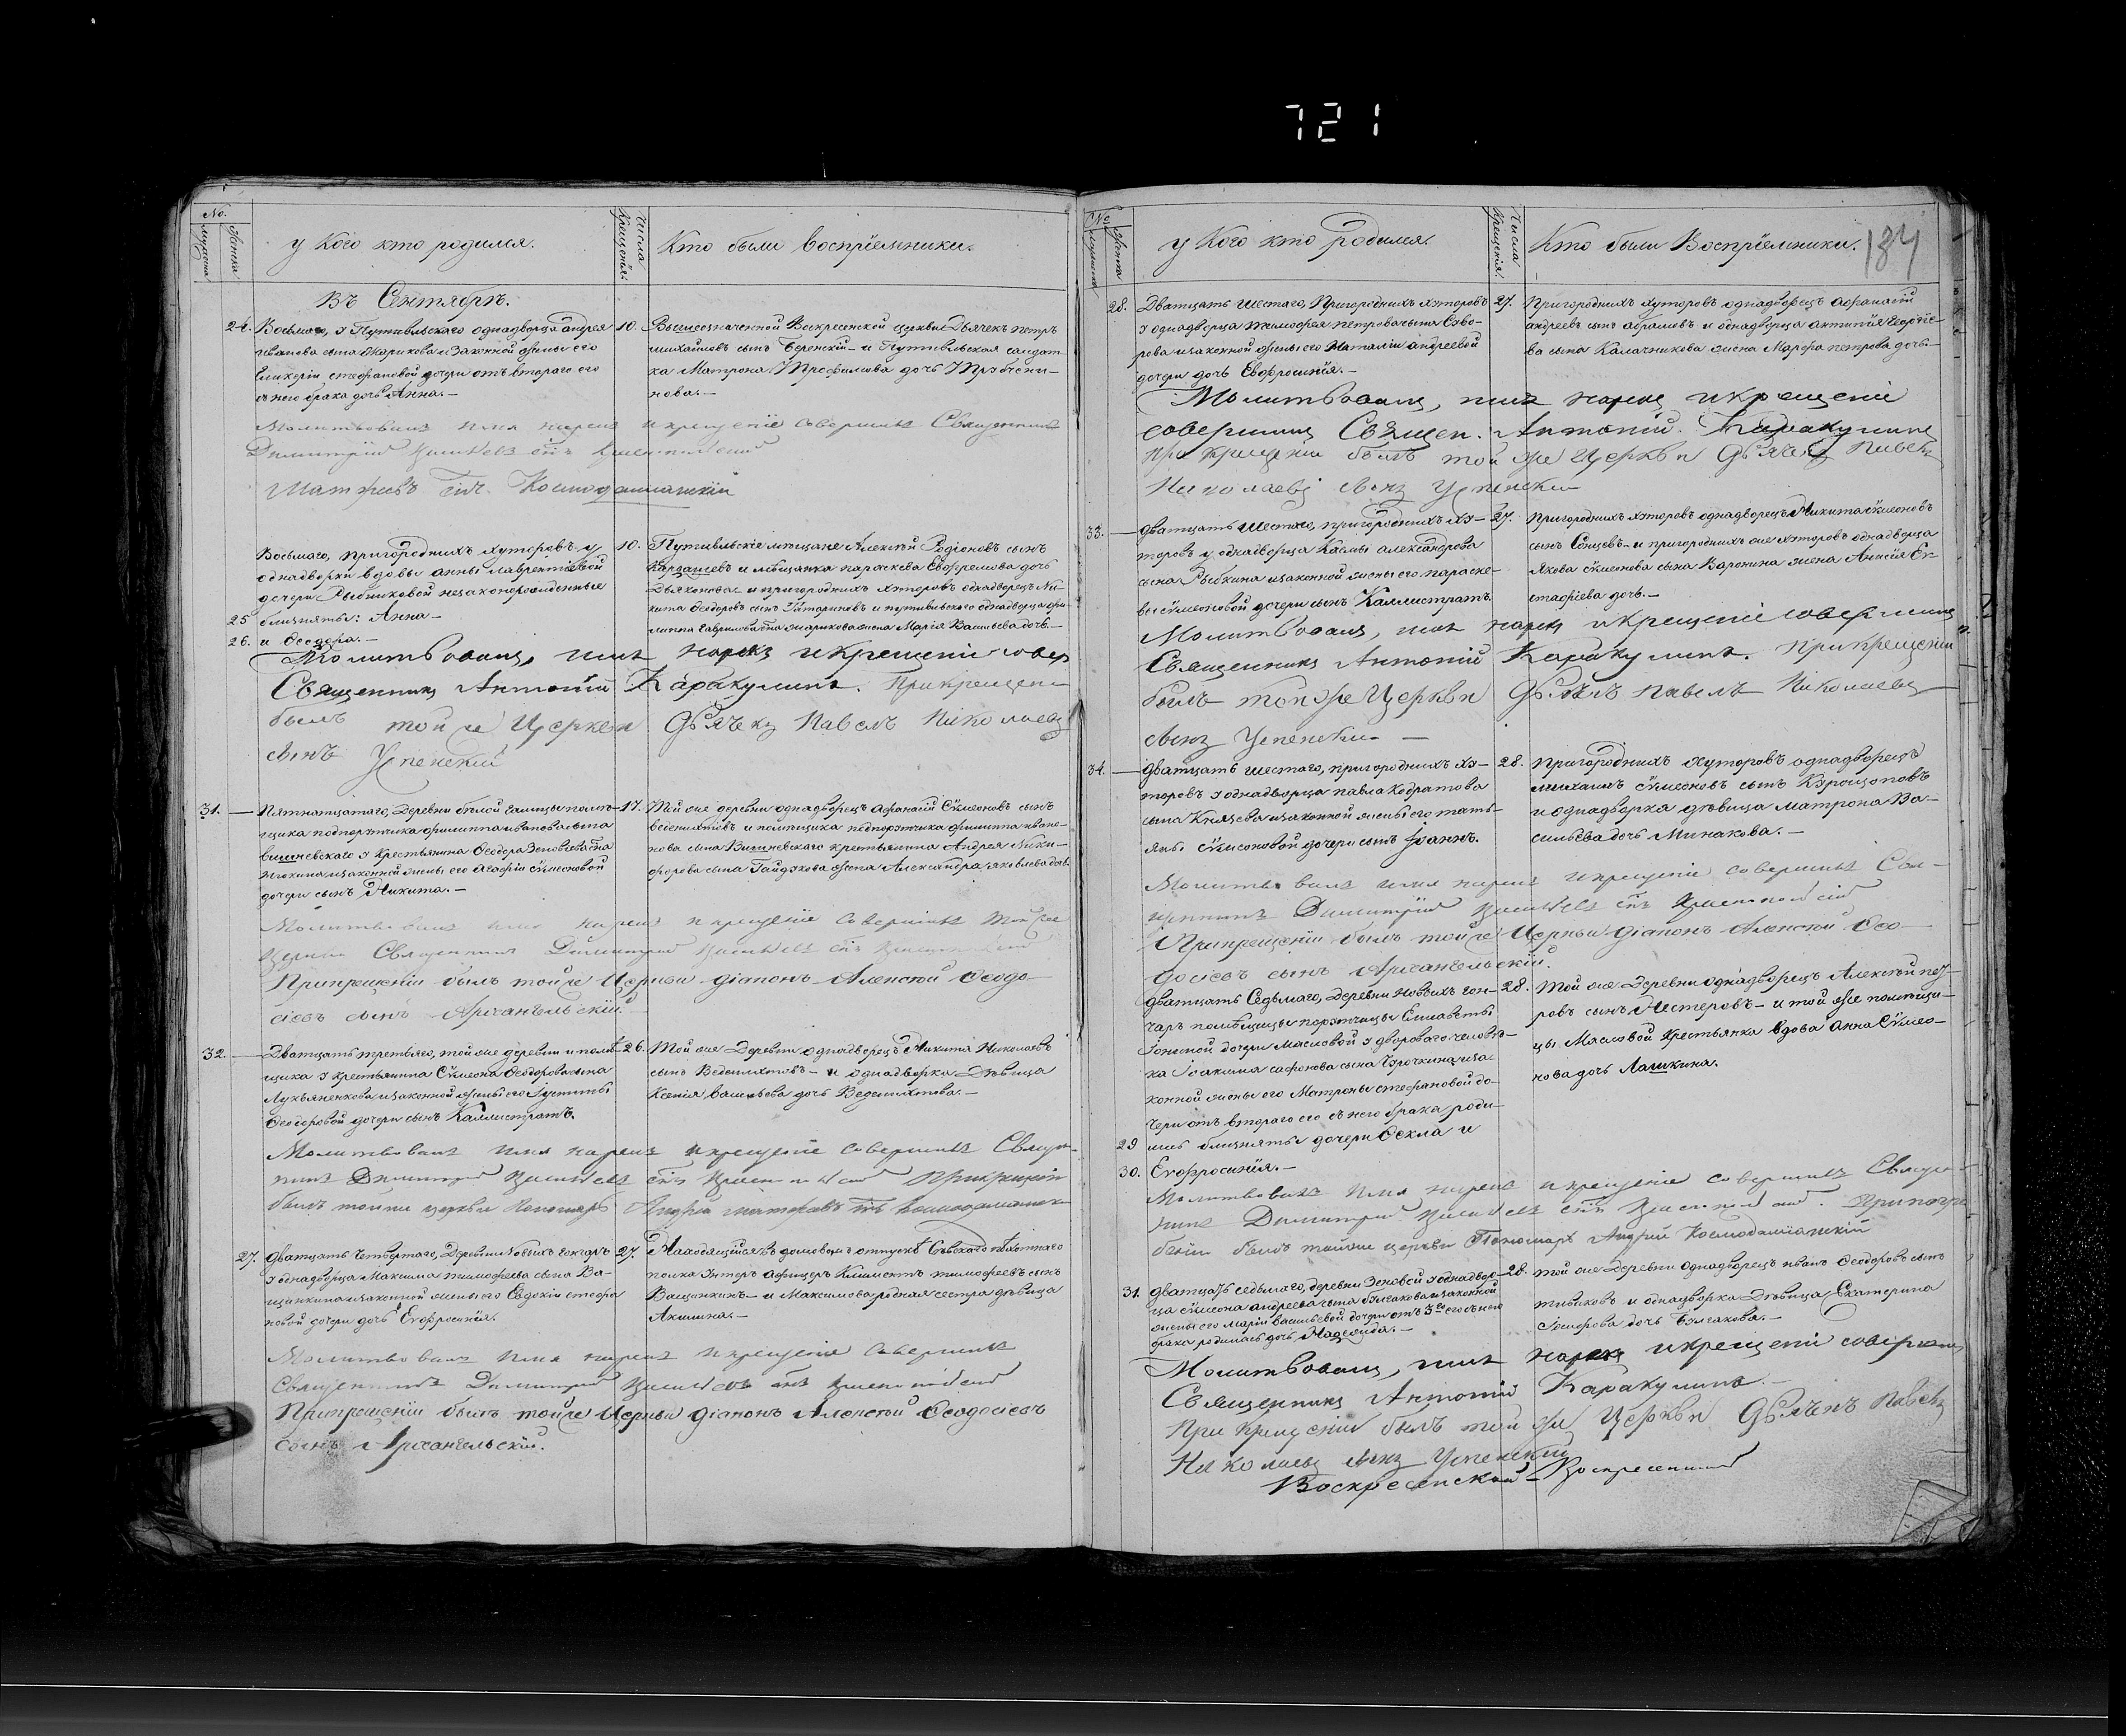 721
No.
Мужеска
Женска
у Кого кто родился.
Числа Крещенія.
Кто были воспріемники.
Въ Сентябрѣ.
24. Восьмаго, у Путивльскаго однадворца андрея
иванова сына Жарикова и законной жены его
Гликеріи стефановой дочери отъ втораго его
съ нею брака дочь Анна.—
10. Вышеозначенной Воскресенской церкви Дьячекъ петръ
михайловъ сынъ и Путивльская салдат-
ка Матрона Трофимова дочь
нова.—
Молитвовалъ имя нарекъ и крещеніе совершилъ Священникъ
Димитрій
Матфеевъ сынъ Космодаміанскій
Восьмаго, пригородныхъ хуторовъ у
однадворки вдовы анны лаврентьевой
дочери Рыбниковой незаконорожденные
25 близняты: Анна—
26. и Феодора.—
10. Путивльскіе мещане Алексѣй Родіоновъ сынъ
Кардашевъ и мѣщанка параскева Евфремова дочь
Дьяконова и пригородныхъ хуторовъ однадворецъ Ни-
кита Феодоровъ сынъ и путивльскаго однадворца фи-
липпа Гаврилова сна жарикова жена Марія Васильева дочь.—
Молитвовалъ, имя нарекъ и крещеніе совер
Священникъ Антоній Каракулинъ. При крещеніи
былъ той же Церкви Дьячекъ Павелъ Николаевъ
сынъ Успенскій
31. Пятнатцатаго, Деревни бѣлой Галицы помѣ-
щика подпорутчика филиппа иванова сына
вишневскаго у крестьянина Феодора Зеновьева сна
и законной жены его Агафіи Симеоновой
дочери сынъ Никита.—
17. Той же деревни однадворецъ Афанасій Симеоновъ сынъ
веденихтовъ и помѣщика подпорутчика филиппа ивано-
нова сына Вишневскаго крестьянина Андрея Ники-
форова сына Гайдукова жена Александра яковлева дочь.
Молитвовалъ имя нарекъ и крещеніе совершилъ той же
церкви Священникъ Димитрій
При крещеніи былъ той же Церкви діаконъ Алексѣй Феодо-
сіевъ сынъ Архангельскій.
32. Дватцать третьяго, той же деревни и помѣ-
щика у крестьянина Симеона Феодорова сына
Лукьяненкова и законной жены его Іустины
Феодоровой дочери сынъ Каллистратъ.
26. Той же Деревни однадворецъ Никита Николаевъ
сынъ Веденихтовъ— и однадворка Дѣвица
Ксенія Васильева дочь Веденихтова.—
Молитвовалъ имя нарекъ и крещеніе совершилъ Священ-
никъ Димитрій При крещеніи
былъ той же церкви Пономарь Андрей матфеевъ сынъ Космодаміанск
27. Дватцать Четвертаго, Деревни Новыхъ гончаръ
у однадворца Максима тимофеева сына Ва-
щинкина и законной жены его Евдокіи стефа
новой дочери дочь Евфросинія.
27. Находящійся въ домовомъ отпускѣ Сѣвскаго пѣхотнаго
полка Унтеръ Афицеръ Климентъ тимофеевъ сынъ
Ващинкинъ— и Максимова родная сестра дѣвица
Акилина.—
Молитвовалъ имя нарекъ и крещеніе совершилъ
Священникъ Димитрій
При крещеніи былъ той же Церкви діаконъ Алексѣй Феодосіевъ
сынъ Архангельскій.
No
Мужеска
Женска
у Кого кто родился.
Числа Крещенія.
Кто были Воспріемники.
184
28. Дватцать шестаго, Пригородныхъ хуторовъ
у однадворца тимофея петрова сына Суво-
рова и законной жены его Наталіи андреевой
дочери дочь Евфросинія.—
27. Пригородныхъ хуторовъ однадворецъ афанасій
андреевъ сынъ абрамовъ и однадворца антипія Георгіе-
ва сына Калачникова жена Марфа петрова дочь—
Молитвовалъ, имя нарекъ и крещеніе
совершилъ Священ. Антоній Каракулинъ
При крещеніи былъ той же Церкви Дьячекъ Павелъ
Николаевъ сынъ Успенскій
33. Дватцать шестаго, пригородныхъ ху-
торовъ у однадворца Касмы александрова
сына Рыбкина и законной жены его параске-
вы Симеоновой дочери сынъ Каллистратъ.
27. Пригородныхъ хуторовъ однадворецъ Никита Симеоновъ
сынъ и пригородныхъ же хуторовъ однадворца
Якова Симеонова сына Воронина жена Анисія Ев-
стафіева дочь.—
Молитвовалъ, имя нарекъ и крещеніе совершилъ
Священникъ Антоній Каракулинъ. При крещеніи
былъ той же Церкви Дьячекъ Павелъ Николаевъ
сынъ Успенскій—
34. Дватцать шестаго, пригородныхъ ху-
торовъ у однадворца павла Кодратова
сына Князева и законной жены его тать-
яны Симеоновой дочери сынъ Іоаннъ.
28. Пригородныхъ хуторовъ однадворецъ
михаилъ Симеоновъ сынъ
и однадворка дѣвица матрона Ва-
сильева дочь Минакова.—
Молитвовалъ имя нарекъ и крещеніе совершилъ Свя-
щенникъ Димитрій
При крещеніи былъ той же Церкви діаконъ Алексѣй Фео-
досіевъ сынъ Архангельскій.
Дватцать Седьмаго, Деревни Новыхъ гон-
чаръ помѣщицы порутчицы Елисаветы
дочери Масловой у двороваго человѣ-
ка Іоакима сафонова сына и за-
конной жены его Матроны стефановой до-
чери отъ втораго его съ нею брака роди-
29 лись близняты дочери Фекла и
30. Евфросинія.—
28. Той же Деревни Однадворецъ Алексѣй пет-
ровъ сынъ Нестеровъ— и той же помѣщи-
цы Масловой Крестьянка вдова Анна Симео-
нова дочь Лашкина.
Молитвовалъ имя нарекъ и крещеніе совершилъ Священ-
никъ Димитрій
былъ той же церкви Пономарь Андрей Космодаміанскій
31. Дватцать седьмаго, деревни Зеновой у однадвор-
ца Симеона андреева сына Булгакова и законной
жены его Маріи васильевой дочери отъ 3го его съ нею
брака родилась дочь Надежда.—
28. Той же Деревни Однадворецъ иванъ Феодоровъ сынъ
и однадворка Дѣвица Екатерина
дочь Булгакова.—
Молитвовалъ, имя нарекъ и крещеніе совершилъ
Священникъ Антоній Каракулинъ.—
При крещеніи былъ той же Церкви Дьячекъ Павелъ
Николаевъ сынъ Успенскій
Воскресенской